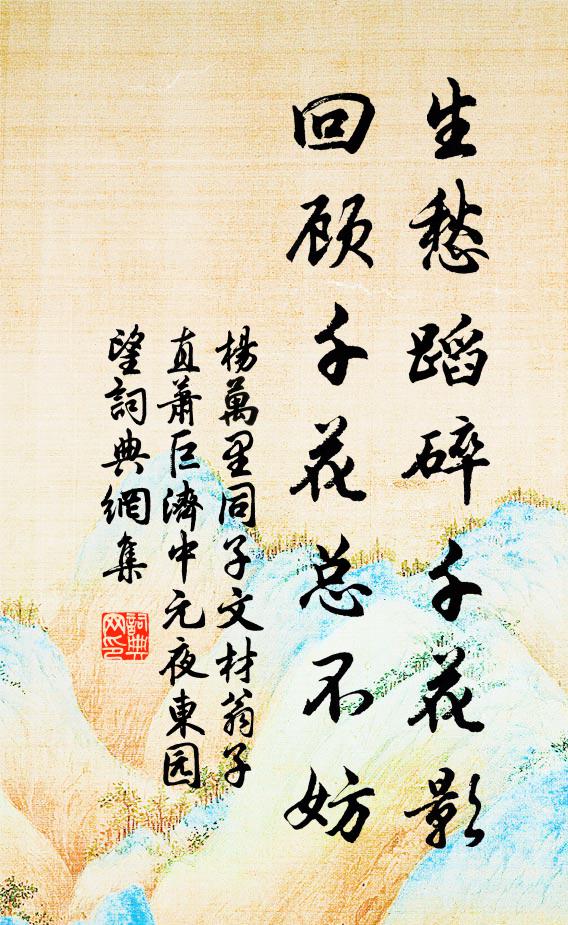 生愁蹈碎千花影
回顾千花总不妨
楊萬里同子文材翁子
直萧巨濟中元夜東园
望詞典網集
詞典
网印